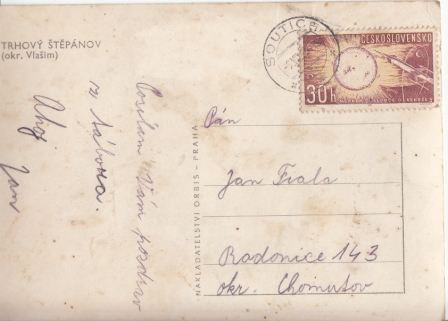 TRHOVÝ ŠTĚPÁNOV
(okr. Vlašim)
Posílám Vám pozdrav
z tábora.
Ahoj
Jan
NAKLADATELSTVÍ ORBIS - PRAHA
SOUTICE
ČESKOSLOVENSKO
30 h
Pán
Jan Fiala
Radonice 143
okr. Chomutov